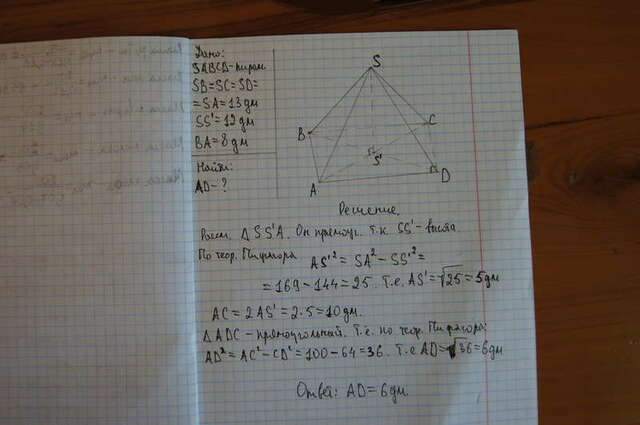 Дано:
SABCD-пирам
SB=SC=SD=
=SA=13дм
SS'=12дм
BA=8дм
Найти:
AD-?
S
B
C
S'
A
D
Решение.
Рассм. △SS'A. Он прямоуг. т.к. SS'-высота.
По теор. Пифагора AS'²=SA²-SS'²=
=169-144=25. Т.е. AS'=√25=5дм
AC=2AS'=2·5=10дм.
△ADC-прямоугольный. Т.е. по теор. Пифагора:
AD²=AC²-CD²=100-64=36. Т.е AD=√36=6дм
Ответ: AD=6дм.